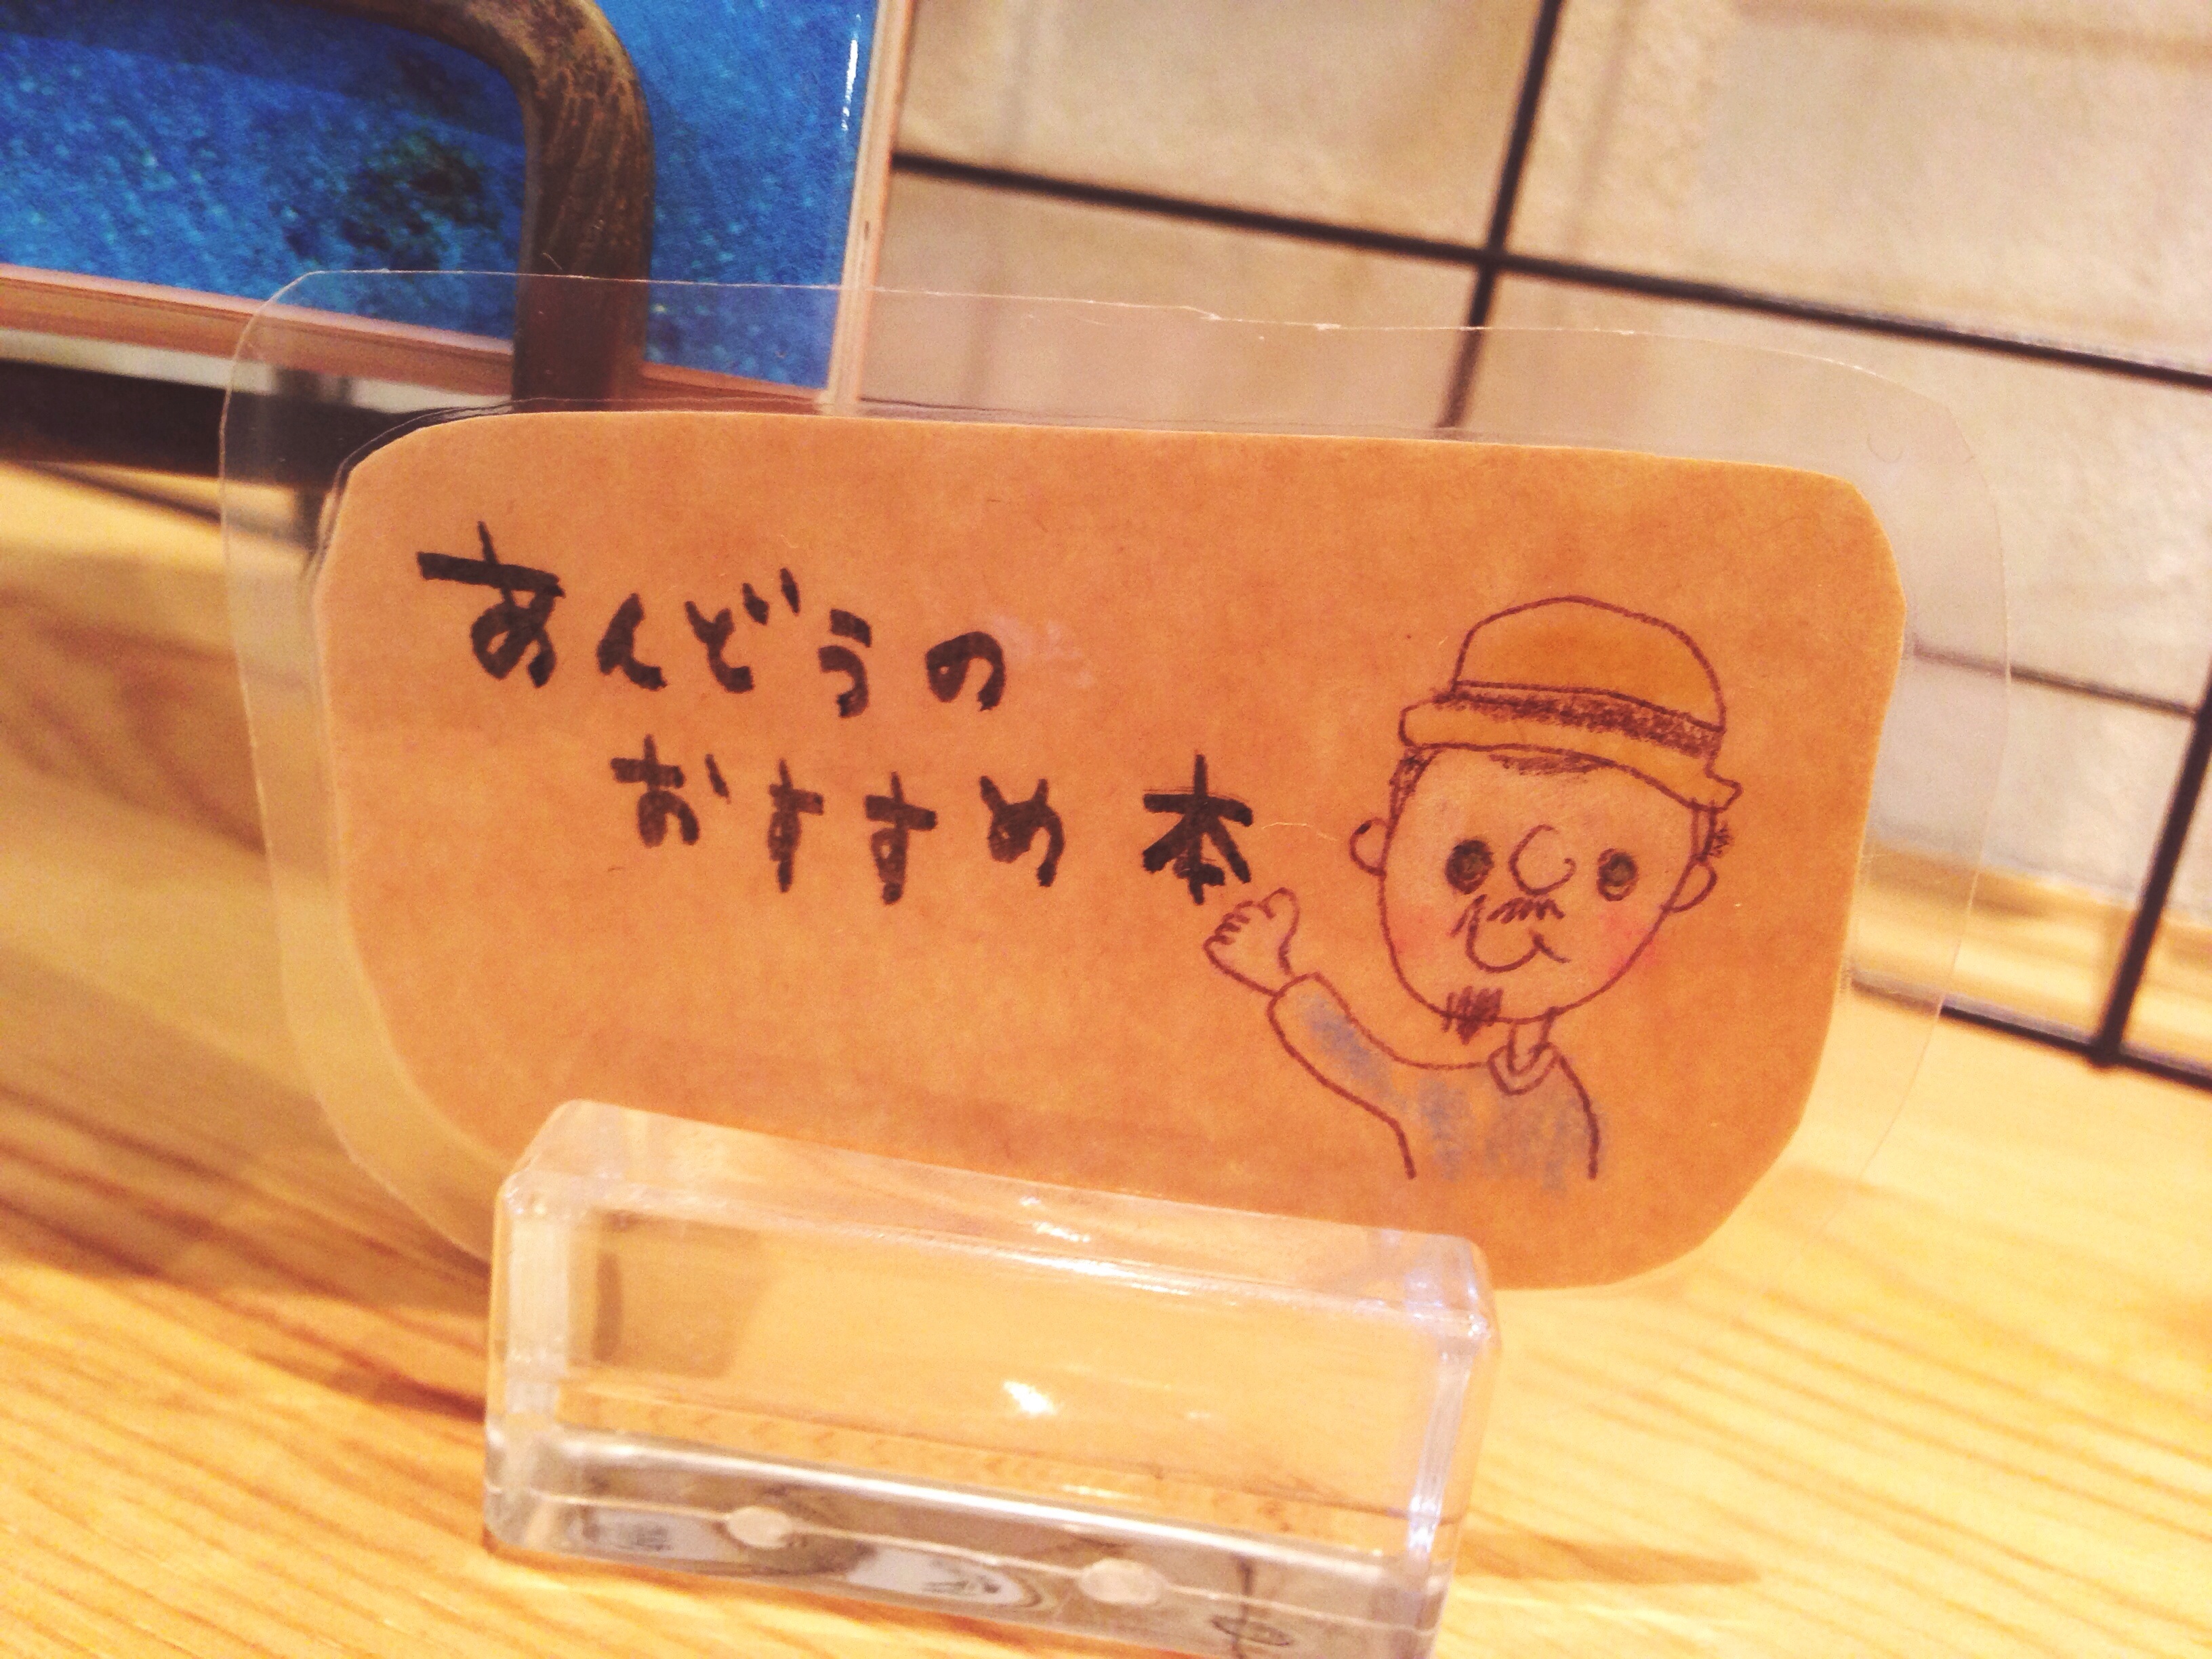 あんどうの
おすすめ本